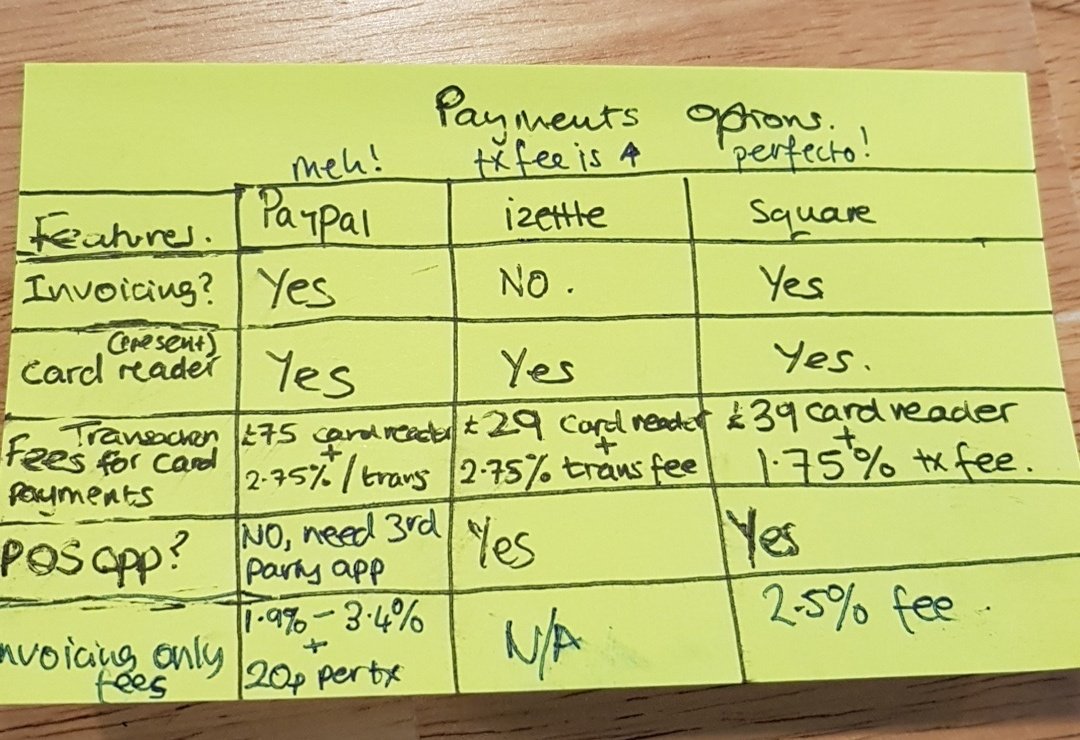 Payments options.
meh! tx fee is ↑ perfecto!
Features. PayPal izettle Square
Invoicing? Yes NO. Yes
(present)
Card reader Yes Yes Yes.
Transaction £75 card reader £29 card reader £39 card reader
Fees for card + + +
payments 2.75% / trans 2.75% trans fee 1.75% tx fee.
POS app? NO, need 3rd Yes Yes
party app
nvoicing only 1.9% - 3.4% N/A 2.5% fee.
fees +
20p per tx